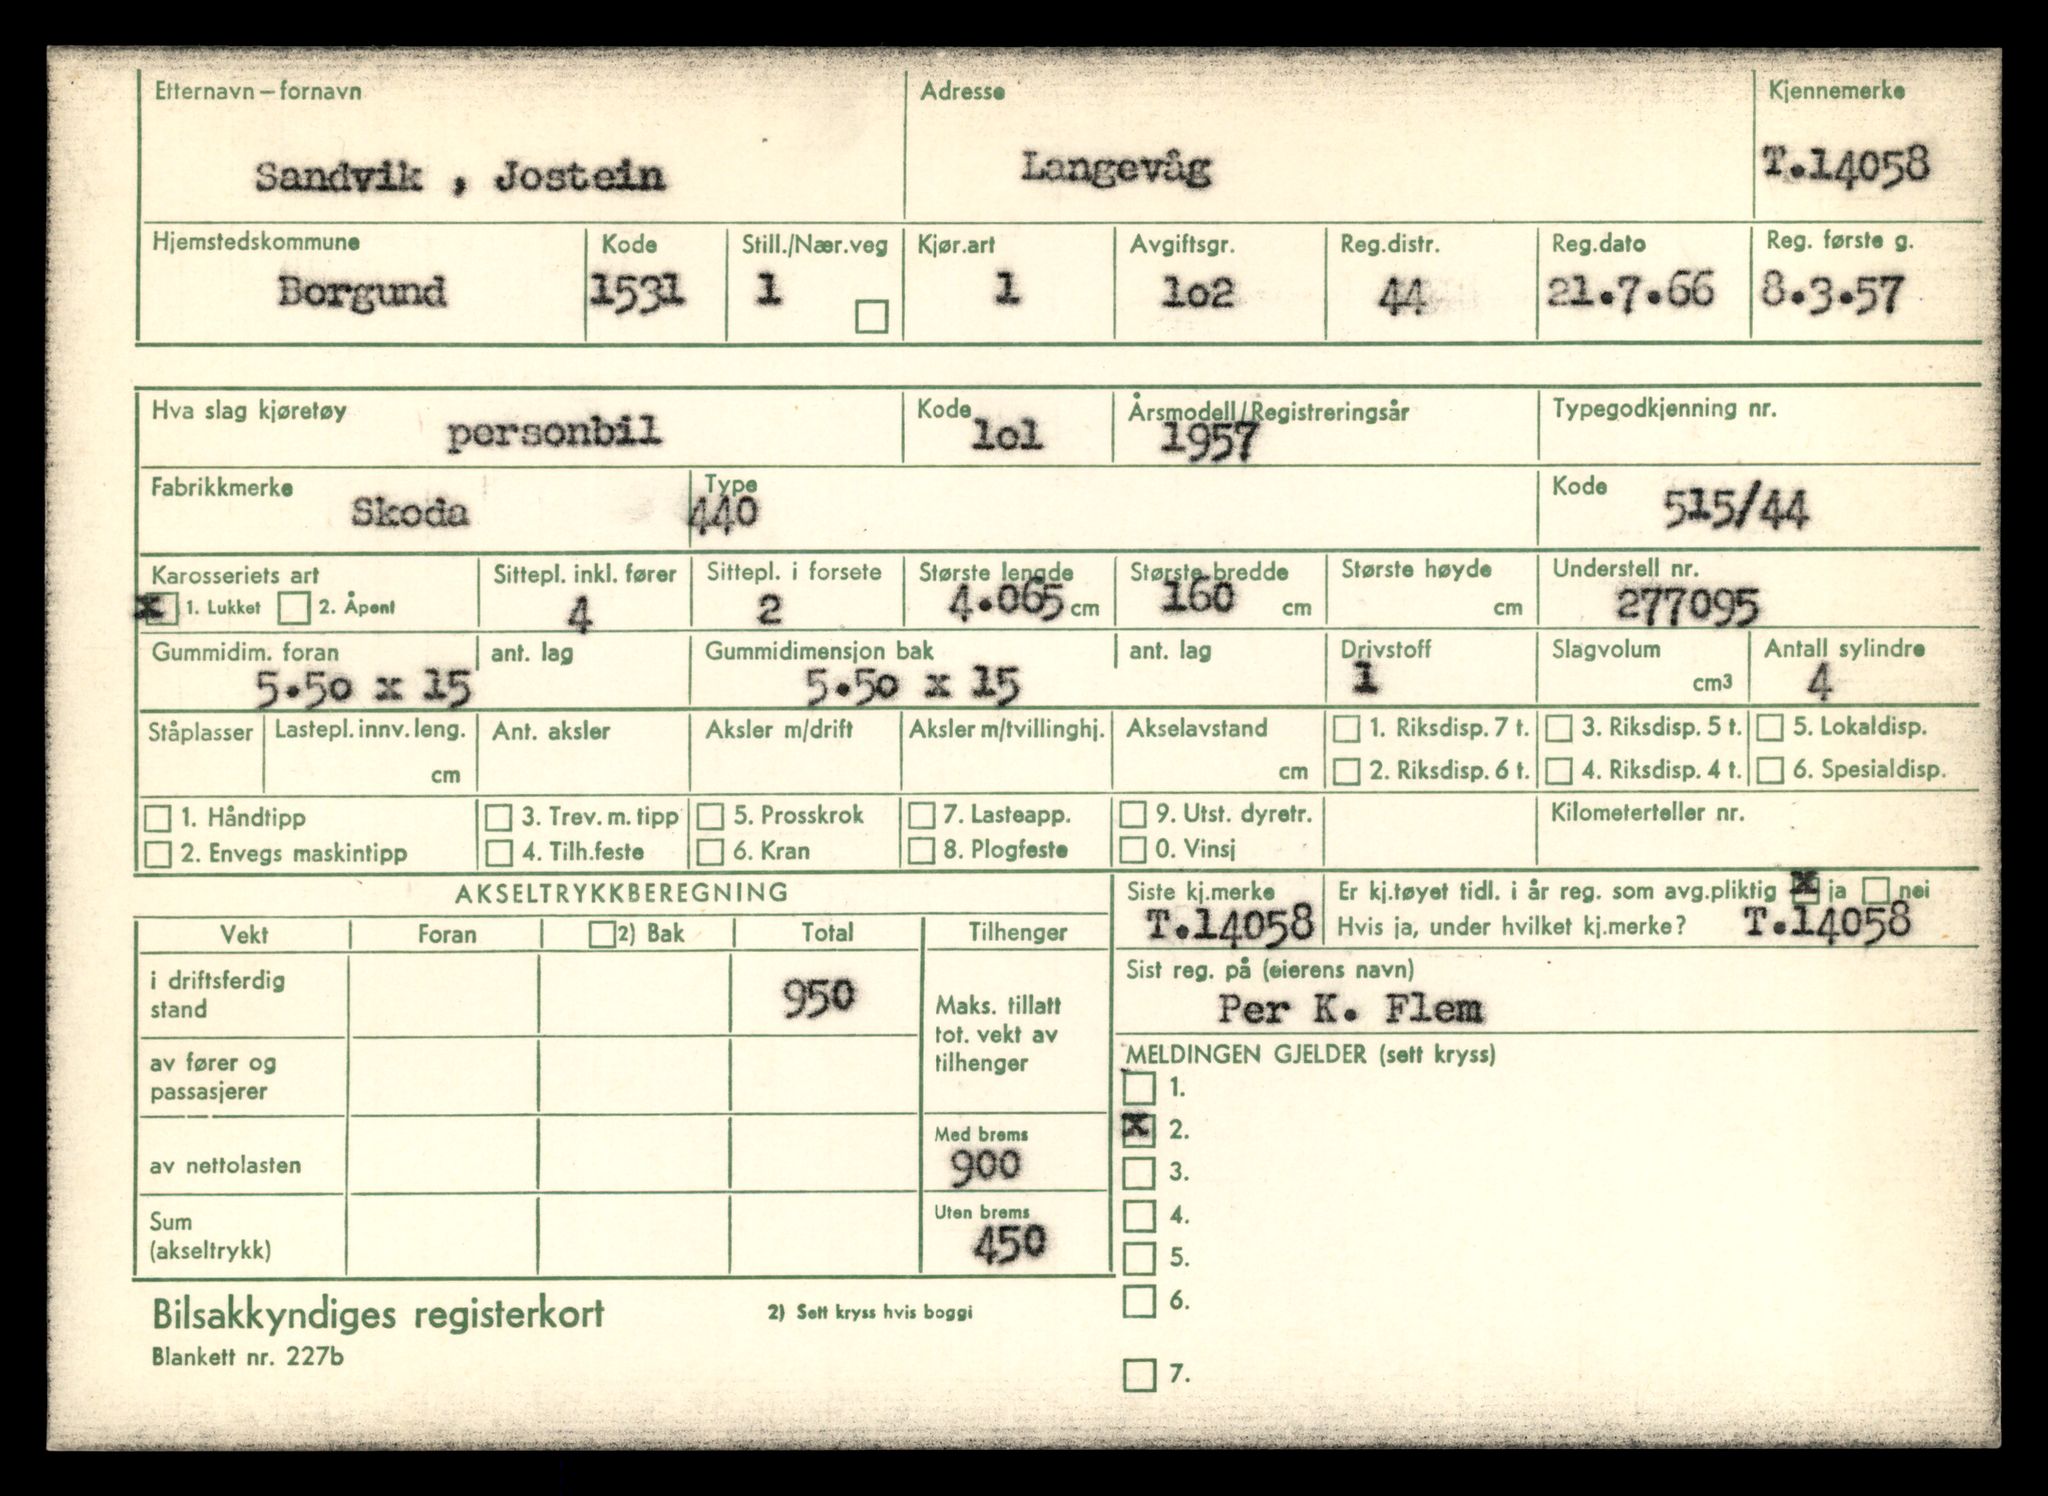 Etternavn – fornavn Adresse Kjennemerke
Sandvik , Jostein Langevåg T.14058
Hjemstedskommune Kode Still./Nær.veg Kjør.art Avgiftsgr. Reg.distr. Reg.dato Reg. første g.
Borgund 1531 1 1 1o2 44 21.7.66 8.3.57
Hva slag kjøretøy Kode Årsmodell/Registreringsår Typegodkjenning nr.
personbil 1o1 1957
Fabrikkmerke Type Kode
Skoda 440 515/44
Karosseriets art Sittepl. inkl. fører Sittepl. i forsete Største lengde Største bredde Største høyde Understell nr.
x 1. Lukket 2. Åpent 4 2 4.065 cm 160 cm cm 277095
Gummidim. foran ant. lag Gummidimensjon bak ant. lag Drivstoff Slagvolum Antall sylindre
5.50 x 15 5.50 x 15 1 cm3 4
Ståplasser Lastepl. innv. leng. Ant. aksler Aksler m/drift Aksler m/tvillinghj. Akselavstand 1. Riksdisp. 7 t. 3. Riksdisp. 5 t. 5. Lokaldisp.
cm cm 2. Riksdisp. 6 t. 4. Riksdisp. 4 t. 6. Spesialdisp.
1. Håndtipp 3. Trev. m. tipp 5. Prosskrok 7. Lasteapp. 9. Utst. dyretr. Kilometerteller nr.
2. Envegs maskintipp 4. Tilh.feste 6. Kran 8. Plogfeste 0. Vinsj
AKSELTRYKKBEREGNING
Vekt Foran 2) Bak Total Tilhenger
i driftsferdig stand 950
Maks. tillatt tot. vekt av tilhenger
av fører og passasjerer
av nettolasten
Med brems
900
Sum (akseltrykk)
Uten brems
450
Siste kj.merke Er kj.tøyet tidl. i år reg. som avg.pliktig x ja nei
T.14058 Hvis ja, under hvilket kj.merke? T.14058
Sist reg. på (eierens navn)
Per K. Flem
MELDINGEN GJELDER (sett kryss)
1.
x 2.
3.
4.
5.
6.
7.
Bilsakkyndiges registerkort 2) Sett kryss hvis boggi
Blankett nr. 227b